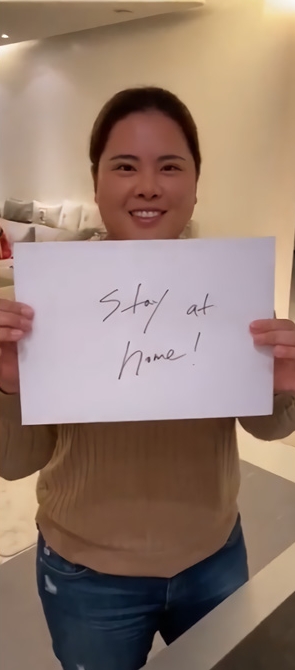 Stay at
home!